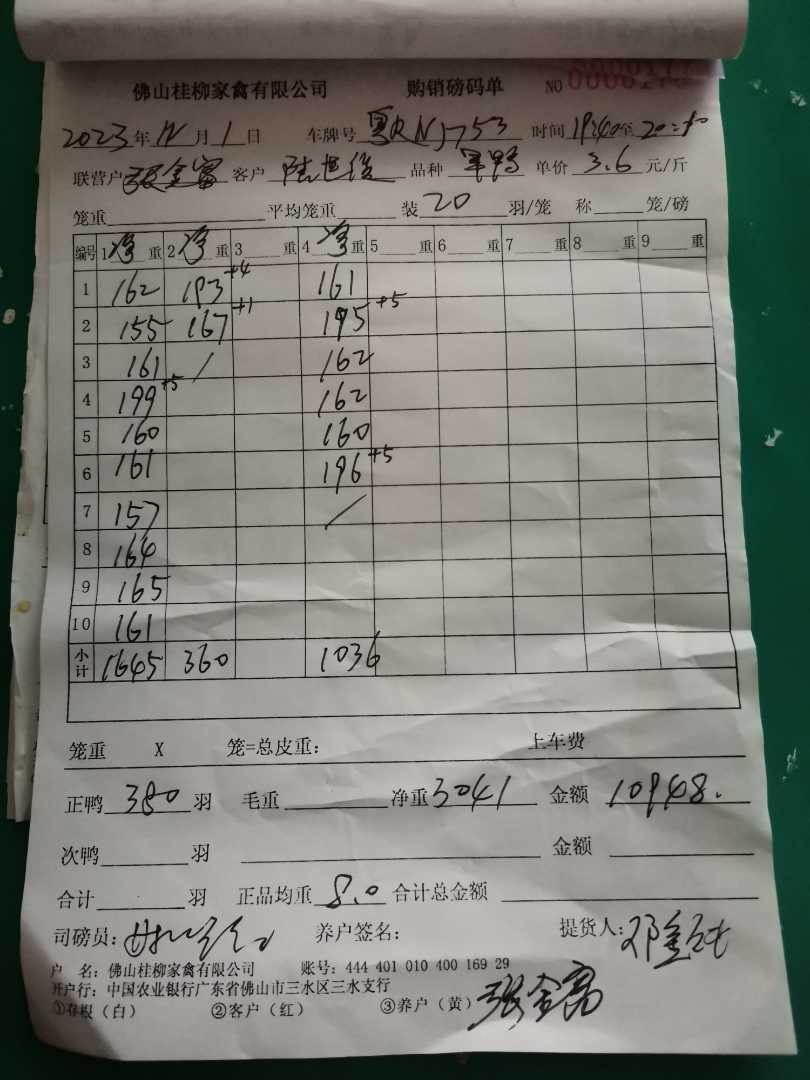 佛山桂柳家禽有限公司 购销磅码单 NO
2023年12月1日 车牌号 粤RNJ753 时间19:40至20:
联营户张金富 客户 陆旦俊 品种 单价 3.6 元/斤
笼重 平均笼重 装 20 羽/笼 称 笼/磅
编号 1净重 2净重 3 重 4净重 5 重 6 重 7 重 8 重 9 重
1 162 193+4 161
2 155 167+1 195+5
3 161 / 162
4 199+5 162
5 160 160
6 161 196+5
7 157 /
8 164
9 165
10 161
小计 1645 360 1036
笼重 X 笼=总皮重: 上车费
正鸭 380 羽 毛重 净重3041 金额 10948.
次鸭 羽 金额
合计 羽 正品均重 8.0 合计总金额
司磅员: 养户签名: 提货人:
户 名: 佛山桂柳家禽有限公司 账号: 444 401 010 400 169 29
开户行: 中国农业银行广东省佛山市三水区三水支行
①存根(白) ②客户(红) ③养户(黄) 张金富